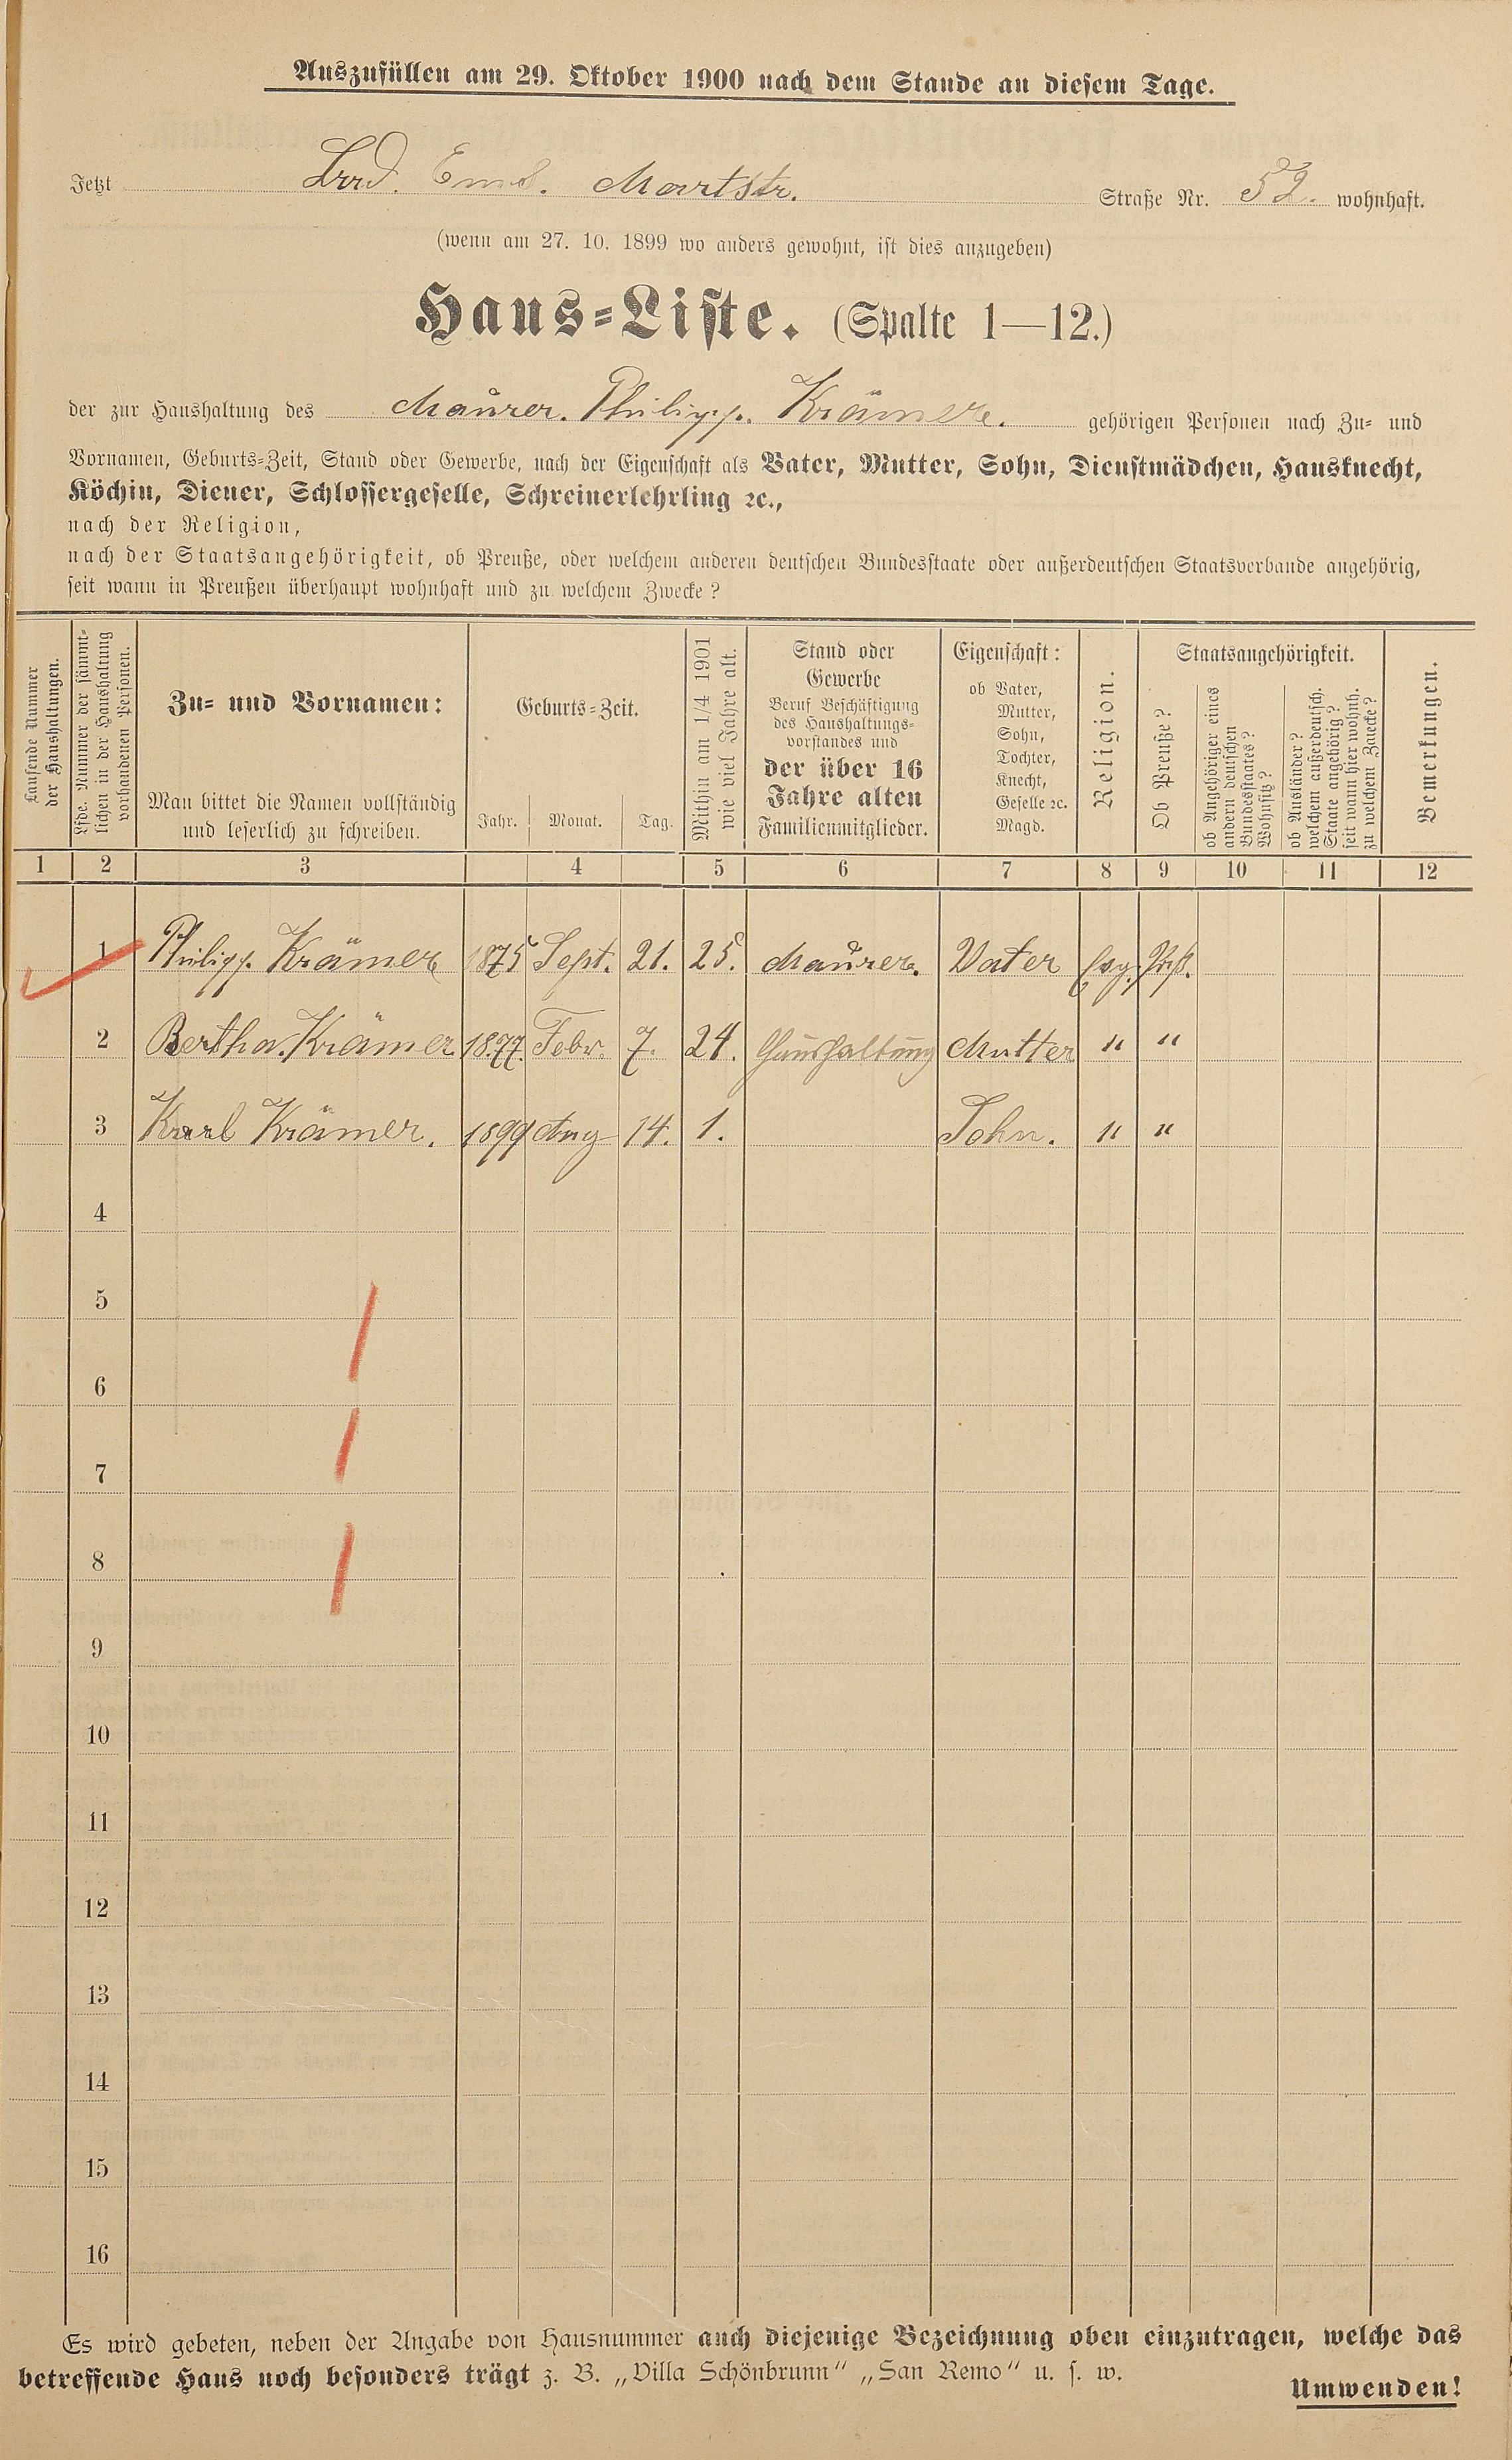 Auszufüllen am 29. Oktober 1900 nach dem Stande an diesem Tage.
Jetzt Bad. Ems. Marktstr. Straße Nr. 52. wohnhaft.
(wenn am 27. 10. 1899 wo anders gewohnt, ist dies anzugeben)
Haus=Liste. (Spalte 1—12.)
der zur Haushaltung des Maurer. Philipp. Krämer. gehörigen Personen nach Zu= und
Vornamen, Geburts=Zeit, Stand oder Gewerbe, nach der Eigenschaft als Vater, Mutter, Sohn, Dienstmädchen, Hausknecht,
Köchin, Diener, Schlossergeselle, Schreinerlehrling ꝛc.,
nach der Religion,
nach der Staatsangehörigkeit, ob Preuße, oder welchem anderen deutschen Bundesstaate oder außerdeutschen Staatsverbande angehörig,
seit wann in Preußen überhaupt wohnhaft und zu welchem Zwecke?
Laufende Nummer
der Haushaltungen.
Lfde. Nummer der sämmt-
lichen in der Haushaltung
vorhandenen Personen.
Zu= und Vornamen:
Man bittet die Namen vollständig
und leserlich zu schreiben.
Geburts=Zeit.
Jahr. Monat. Tag.
Mithin am 1/4 1901
wie viel Jahre alt.
Stand oder
Gewerbe
Beruf Beschäftigung
des Haushaltungs=
vorstandes und
der über 16
Jahre alten
Familienmitglieder.
Eigenschaft:
ob Vater,
Mutter,
Sohn,
Tochter,
Knecht,
Geselle ꝛc.
Magd.
Religion.
Staatsangehörigkeit.
Ob Preuße?
ob Angehöriger eines
andern deutschen
Bundesstaates?
Wohnsitz?
ob Ausländer?
welchem außerdeutsch.
Staate angehörig?
seit wann hier wohnh.
zu welchem Zwecke?
Bemerkungen.
1 2 3 4 5 6 7 8 9 10 11 12
1 Philipp Krämer 1875 Sept. 21. 25. Maurer. Vater Evg. Prß.
2 Bertha. Krämer 1877. Febr. 7. 24. Haushaltung Mutter " "
3 Karl Krämer. 1899 Aug 14. 1. Sohn. " "
4
5
6
7
8
9
10
11
12
13
14
15
16
Es wird gebeten, neben der Angabe von Hausnummer auch diejenige Bezeichnung oben einzutragen, welche das
betreffende Haus noch besonders trägt z. B. „Villa Schönbrunn“ „San Remo“ u. s. w.
Umwenden!